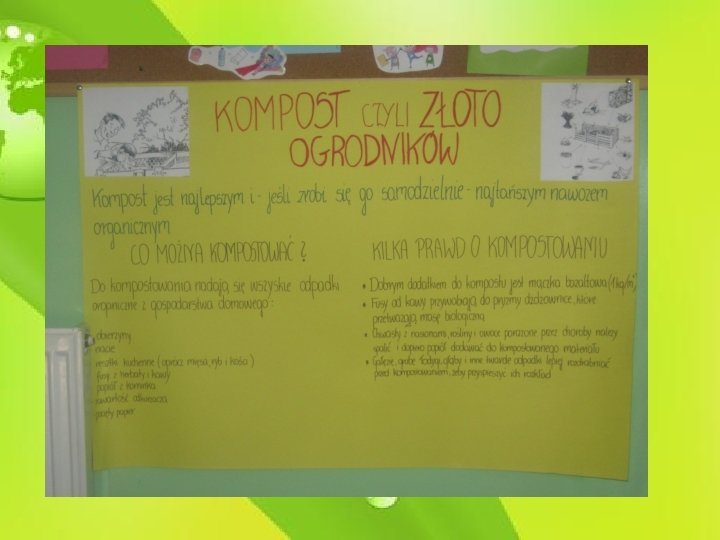 KOMPOST CZYLI ZŁOTO
OGRODNIKÓW
Kompost jest najlepszym i - jeśli zrobi się go samodzielnie - najtańszym nawozem
organicznym
CO MOŻNA KOMPOSTOWAĆ?
Do kompostowania nadają się wszyskie odpadki
organiczne z gospodarstwa domowego:
- obierzyny
- nacie
- resztki kuchenne (oprócz mięsa, ryb i kości)
- fusy z herbaty i kawy
- popiół z kominka
- zawartość odkurzacza
- pocięty papier
KILKA PRAWD O KOMPOSTOWANIU
• Dobrym dodatkiem do kompostu jest mączka bazaltowa (1kg/m³)
• Fusy od kawy przywabiają do pryzmy dżdżownice, które
przetwarzają masę biologiczną
• Chwasty z nasionami, rośliny i owoce porażone przez choroby należy
spalić i dopiero popiół dodawać do kompostowanego materiału
• Gałęzie, grube łodygi, głąby i inne twarde odpadki lepiej rozdrabniać
przed kompostowaniem, żeby przyspieszyć ich rozkład